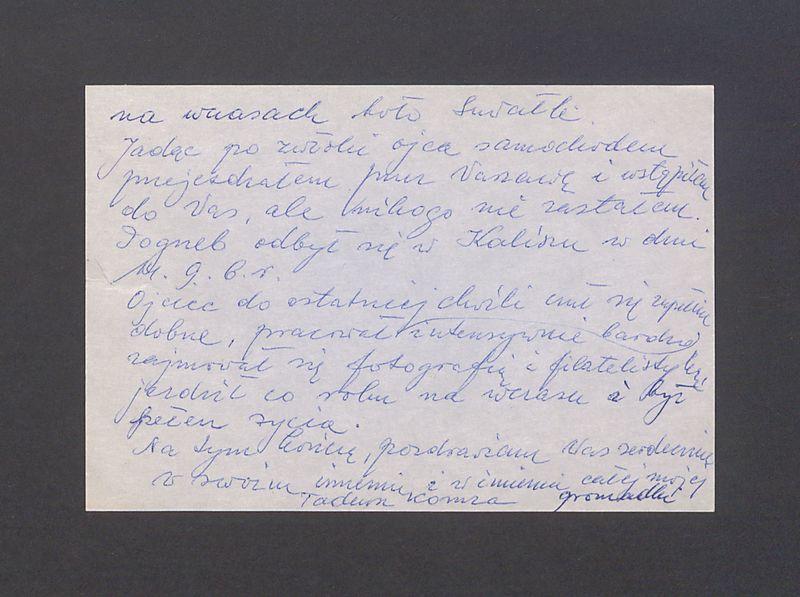 na wczasach koło Suwałk.
Jadąc po zwłoki ojca samochodem
przejeżdżałem przez Warszawę i wstąpiłem
do Was, ale nikogo nie zastałem.
Pogrzeb odbył się w Kaliszu w dniu
9. b.r.
Ojciec do ostatniej chwili czuł się zupełnie
dobrze, pracował intensywnie bardzo
zajmował się fotografią i filatelistyką
jeździł co roku na wczasy i był
pełen życia.
Na tym kończę, pozdrawiam Was serdecznie
w swoim imieniu i w imieniu całej mojej
gromadki
Tadeusz